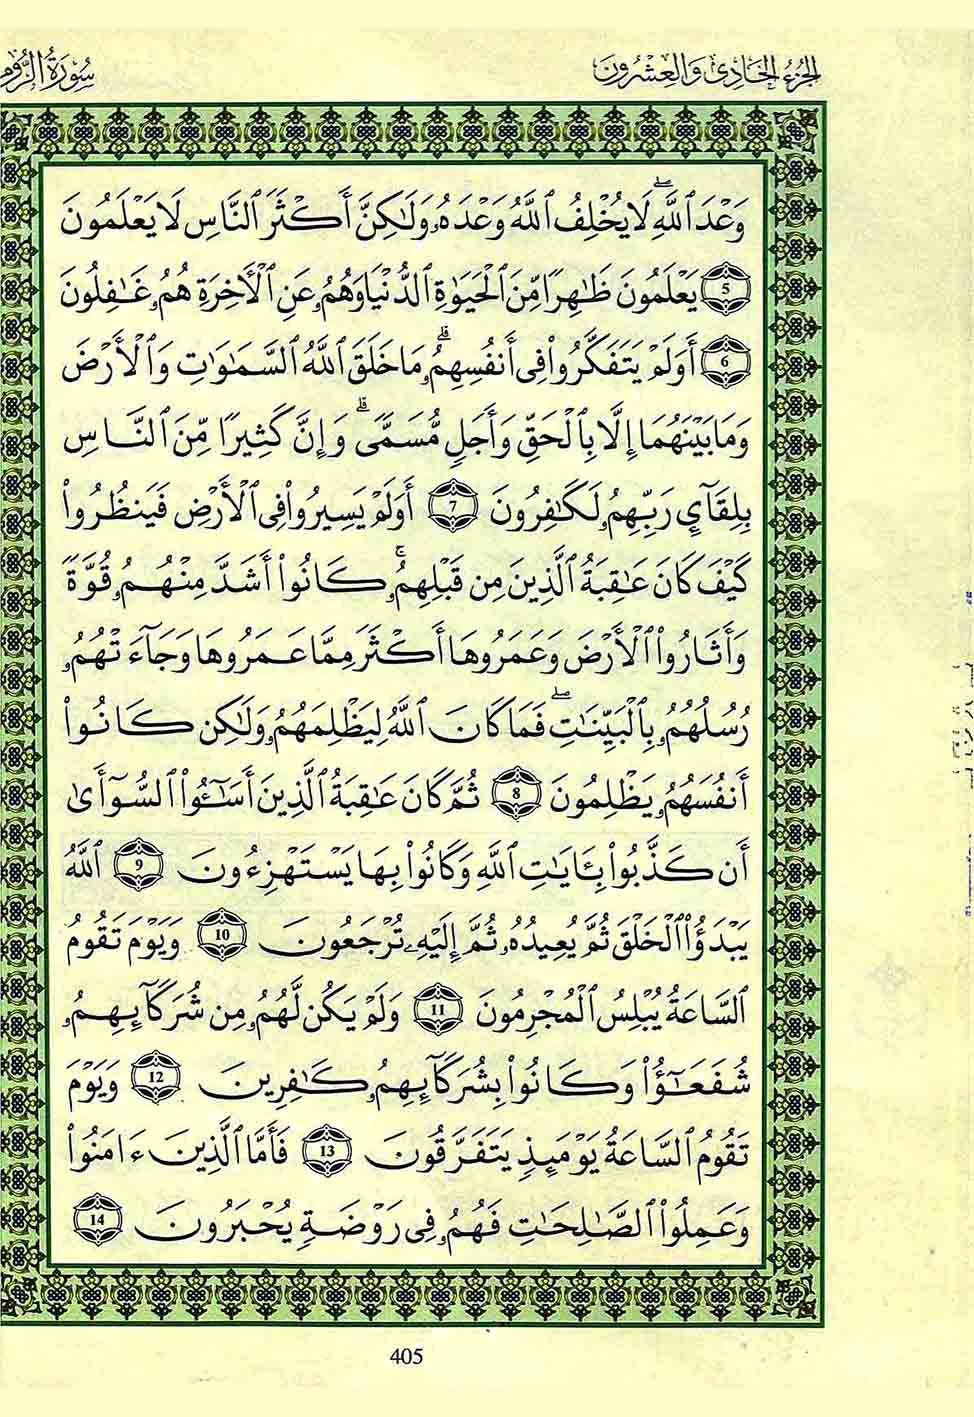 الجزء الحادي والعشرون
سورة الروم
وَعْدَ اَ۬للَّهِۖ لَا يُخْلِفُ اُ۬للَّهُ وَعْدَهُۥ وَلَٰكِنَّ أَكْثَرَ اَ۬لنَّاسِ لَا يَعْلَمُونَ
5 يَعْلَمُونَ ظَٰهِرًا مِّنَ اَ۬لْحَيَوٰةِ اِ۬لدُّنْيَا وَهُمُۥ عَنِ اِ۬لْأَخِرَةِ هُمُۥ غَٰفِلُونَ
6 أَوَلَمْ يَتَفَكَّرُواْ فِي أَنفُسِهِمُۥۗ مَا خَلَقَ اَ۬للَّهُ اُ۬لسَّمَٰوَٰتِ وَالْأَرْضَ
وَمَا بَيْنَهُمَا إِلَّا بِالْحَقِّ وَأَجَلٍ مُّسَمًّىۗ وَإِنَّ كَثِيرًا مِّنَ اَ۬لنَّاسِ
بِلِقَآءِ رَبِّهِمُۥ لَكَٰفِرُونَ 7 أَوَلَمْ يَسِيرُواْ فِي اِ۬لْأَرْضِ فَيَنظُرُواْ
كَيْفَ كَانَ عَٰقِبَةُ اُ۬لَّذِينَ مِن قَبْلِهِمُۥۚ كَانُواْ أَشَدَّ مِنْهُمُۥ قُوَّةً
وَأَثَارُواْ اُ۬لْأَرْضَ وَعَمَرُوهَا أَكْثَرَ مِمَّا عَمَرُوهَا وَجَآءَتْهُمُۥ
رُسُلُهُمُۥ بِالْبَيِّنَٰتِۖ فَمَا كَانَ اَ۬للَّهُ لِيَظْلِمَهُمُۥ وَلَٰكِن كَانُواْ
أَنفُسَهُمُۥ يَظْلِمُونَ 8 ثُمَّ كَانَ عَٰقِبَةُ اُ۬لَّذِينَ أَسَٰٓـُٔواْ اُ۬لسُّوٓأَىٰ
أَن كَذَّبُواْ بِـَٔايَٰتِ اِ۬للَّهِ وَكَانُواْ بِهَا يَسْتَهْزِءُونَ 9 اَ۬للَّهُ
يَبْدَؤُاْ اُ۬لْخَلْقَ ثُمَّ يُعِيدُهُۥ ثُمَّ إِلَيْهِۦ تُرْجَعُونَ 10 وَيَوْمَ تَقُومُ
اُ۬لسَّاعَةُ يُبْلِسُ اُ۬لْمُجْرِمُونَ 11 وَلَمْ يَكُن لَّهُمُۥ مِن شُرَكَآئِهِمُۥ
شُفَعَٰٓؤُاْ وَكَانُواْ بِشُرَكَآئِهِمُۥ كَٰفِرِينَ 12 وَيَوْمَ
تَقُومُ اُ۬لسَّاعَةُ يَوْمَئِذٍ يَتَفَرَّقُونَ 13 فَأَمَّا اَ۬لَّذِينَ ءَامَنُواْ
وَعَمِلُواْ اُ۬لصَّٰلِحَٰتِ فَهُمُۥ فِي رَوْضَةٍ يُحْبَرُونَ 14
405